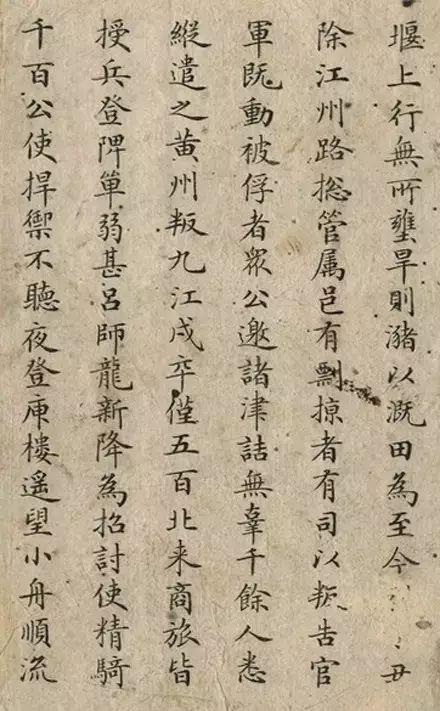 堰上行無所壅旱則瀦以溉田為至今
除江州路揔管属邑有剽掠者有司以叛告官
軍既動被俘者眾公邀諸津詰無辜千餘人悉
縱遣之黄州叛九江戍卒僅五百北来商旅皆
授兵登陴單弱甚吕師龍新降為招討使精騎
千百公使捍禦不聽夜登庾樓遥望小舟順流